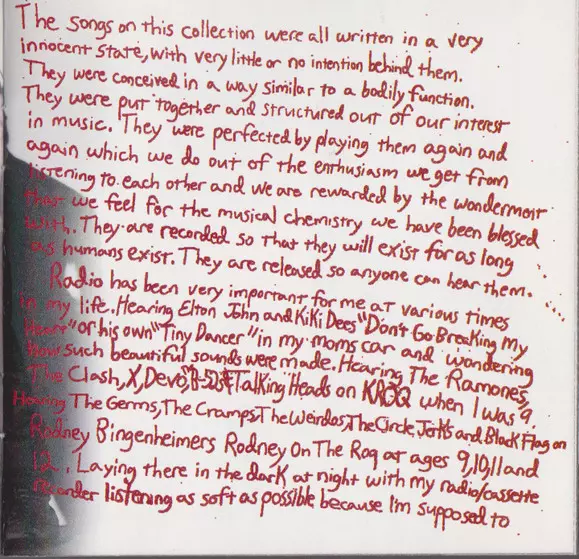 The songs on this collection were all written in a very
innocent state, with very little or no intention behind them.
They were conceived in a way similar to a bodily function.
They were put together and structured out of our interest
in music. They were perfected by playing them again and
again which we do out of the enthusiasm we get from
listening to each other and we are rewarded by the wonderment
that we feel for the musical chemistry we have been blessed
with. They are recorded so that they will exist for as long
as humans exist. They are released so anyone can hear them.
Radio has been very important for me at various times
in my life. Hearing Elton John and Kiki Dees "Don't Go Breaking My
Heart" or his own "Tiny Dancer" in my moms car and wondering
how such beautiful sounds were made. Hearing The Ramones,
The Clash, X, Devo, B-52s & Talking Heads on KROQ when I was 9.
Hearing The Germs, The Cramps, The Weirdos, The Circle Jerks and Black Flag on
Rodney Bingenheimers Rodney On The Roq at ages 9,10,11 and
12. Laying there in the dark at night with my radio/cassette
recorder listening as soft as possible because I'm supposed to